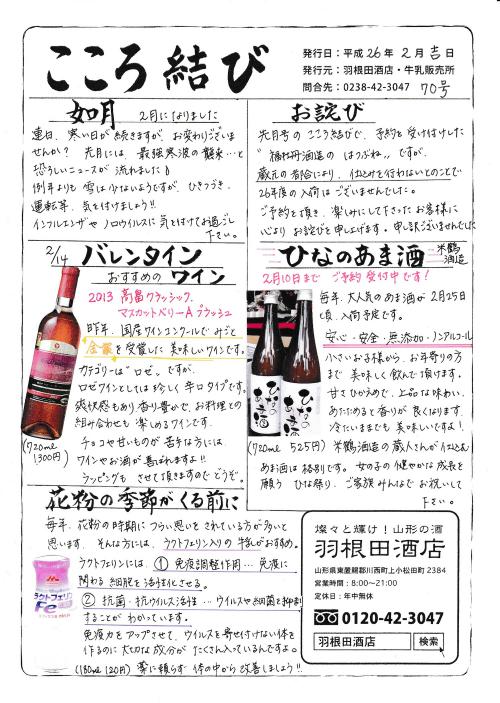 こころ結び
発行日：平成26年2月吉日
発行元：羽根田酒店・牛乳販売所
問合先：0238-42-3047 70号
如月 2月になりました
連日、寒い日が続きますが、お変わりございま
せんか？ 先月には、最強寒波の襲来…と
恐ろしいニュースが流れました♪
例年よりも雪は少ないようですが、ひきつづき、
運転等、気を付けましょう!!
インフルエンザやノロウイルスに気を付けてお過ごし
下さい。
お詫び
先月号のこころ結びで、予約を受け付けした
"福禄寿酒造の はつぬね" ですが、
蔵元の都合により、仕込みを行わないとのことで
26年度の入荷はございませんでした。
ご予約を頂き、楽しみにして下さったお客様に
心よりお詫びを申し上げます。申し訳ございませんでした
2/14 バレンタイン
おすすめの ワイン
2013 高畠クラッシック
マスカットベリーA ブラッシュ
昨年、国産ワインコンクールでみごと
金賞を受賞した美味しいワインです。
カテゴリーは"ロゼ"ですが、
ロゼワインとしては珍しく辛口タイプです。
爽快感もあり、香り豊かで、お料理との
組み合わせも楽しめるワインです。
チョコや甘いものが苦手な方には、
ワインやお酒が喜ばれますよ!!
ラッピングもさせて頂きますのでどうぞ。
(720ml
1300円)
ひなのあま酒 米鶴酒造
2月10日まで ご予約受付中です！
毎年、大人気のあま酒が2月25日
頃、入荷予定です。
安心・安全・無添加・ノンアルコール
小さいお子様から、お年寄りの方
まで美味しく飲んで頂けます。
甘さひかえめで、上品な味わい、
あたためると香りが良くなります。
冷たいままでも美味しいですよ！
(720ml 525円)
米鶴酒造の蔵人さんが仕込む
あま酒は格別です。女の子の健やかな成長を
願うひな祭り、ご家族みんなでお祝いして
下さい。
花粉の季節がくる前に
毎年、花粉の時期につらい思いをされている方が多いと
思います。そんな方には、ラクトフェリン入りの牛乳がおすすめ。
ラクトフェリンには、①免疫調整作用…免疫に
関わる細胞を活性化させる。
②抗菌・抗ウイルス活性…ウイルスや細菌を抑制
することがわかっています。
免疫力をアップさせて、ウイルスを寄せ付けない体を
作るのに大切な成分がたくさん入っているんですよ。
(180ml 120円) 薬に頼らず体の中から改善しましょう!!
ラクトフェリン
Fe
燦々と輝け！山形の酒
羽根田酒店
山形県東置賜郡川西町上小松田町2384
営業時間：8:00～21:00
定休日：年中無休
0120-42-3047
羽根田酒店 検索